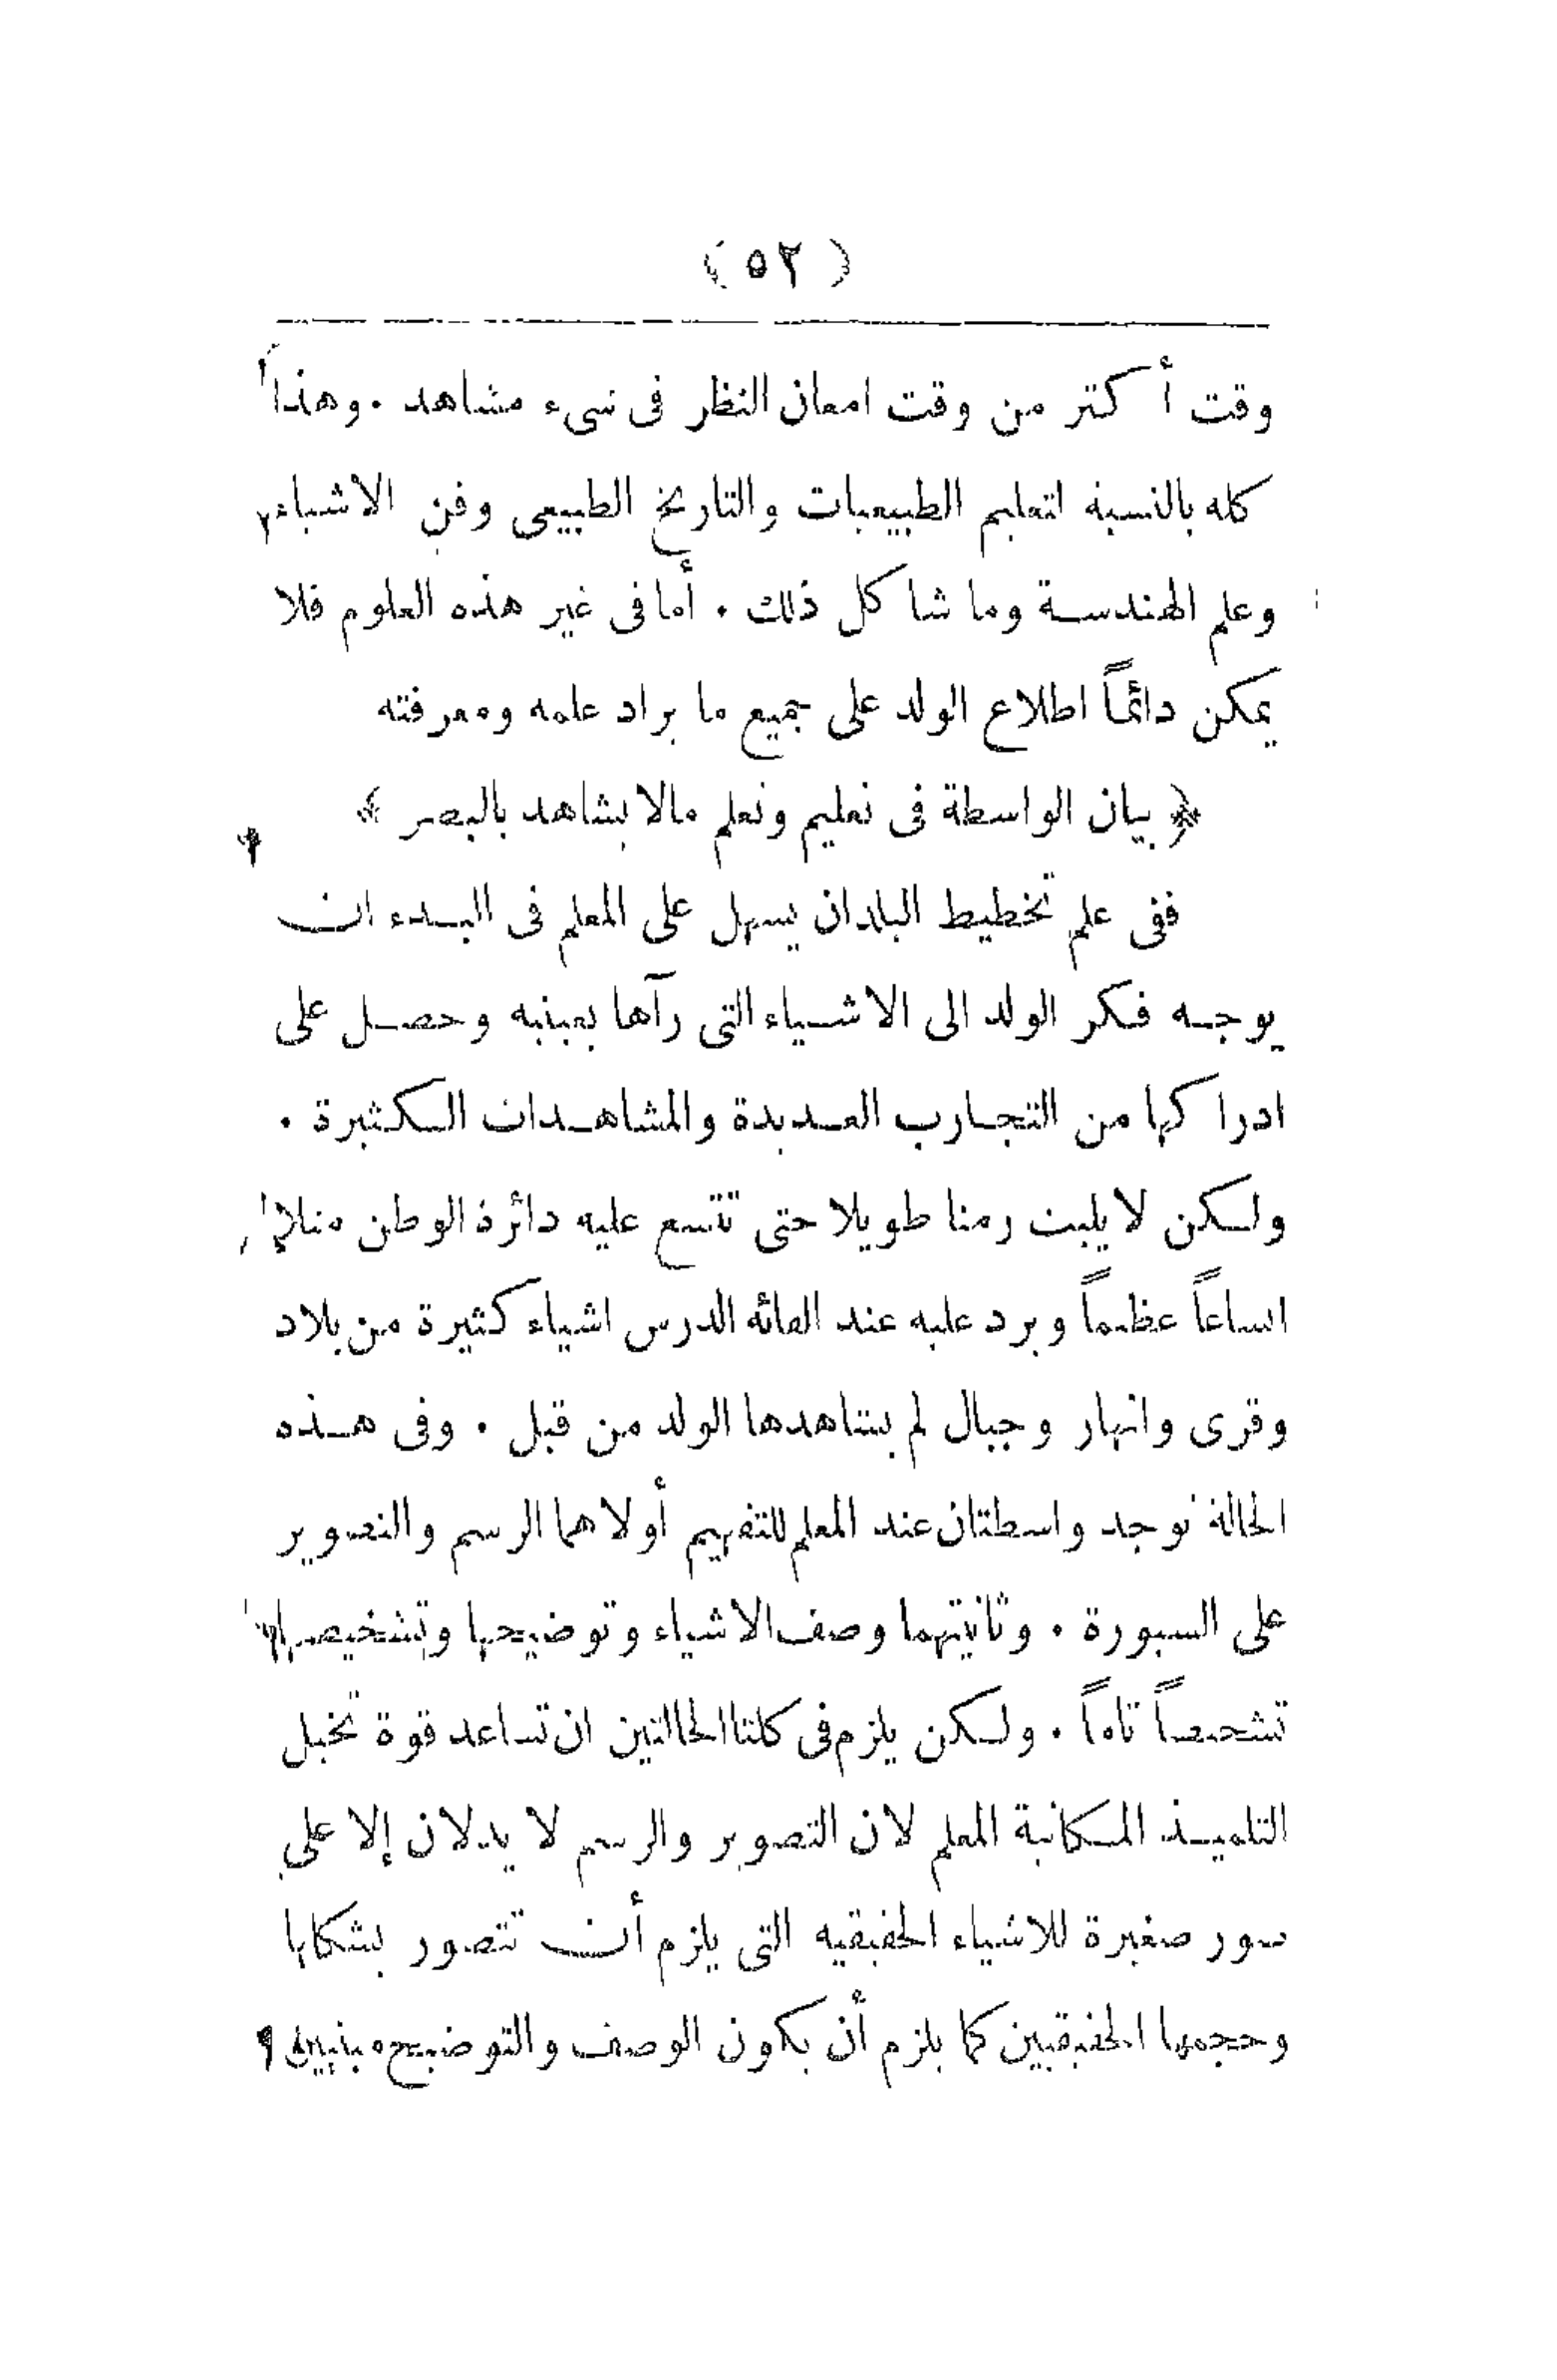 ( ٥٢ )
وقت أكثر من وقت امعان النظر فى شىء مشاهد . وهذا
كله بالنسبة لتعليم الطبيعيات والتاريخ الطبيعى وفن الاشياء
وعلم الهندسة وما شاكل ذلك . أما فى غير هذه العلوم فلا
يمكن دائماً اطلاع الولد على جميع ما يراد علمه ومعرفته
﴿ بيان الواسطة فى تعليم وتعلم مالا يشاهد بالبصر ﴾
ففى علم تخطيط البلدان يسهل على المعلم فى البدء ان
يوجه فكر الولد الى الاشياء التى رآها بعينيه وحصل على
ادراكها من التجارب العديدة والمشاهدات الكثيرة .
ولكن لا يلبث زمنا طويلا حتى تتسع عليه دائرة الوطن مثلا
اتساعاً عظيماً ويرد عليه عند القائه الدرس اشياء كثيرة من بلاد
وقرى وانهار وجبال لم يشاهدها الولد من قبل . وفى هذه
الحالة توجد واسطتان عند المعلم للتفهيم أولاهما الرسم والتصوير
على السبورة . وثانيتهما وصف الاشياء وتوضيحها وتشخيصها
تشخيصاً تاماً . ولكن يلزم فى كلتا الحالتين ان تساعد قوة تخيل
التلميذ المكانية المعلم لان التصوير والرسم لا يدلان إلا على
صور صغيرة للاشياء الحقيقيه التى يلزم أن تتصور بشكلها
وحجمها الحقيقيين كما يلزم أن يكون الوصف والتوضيح مبنيين